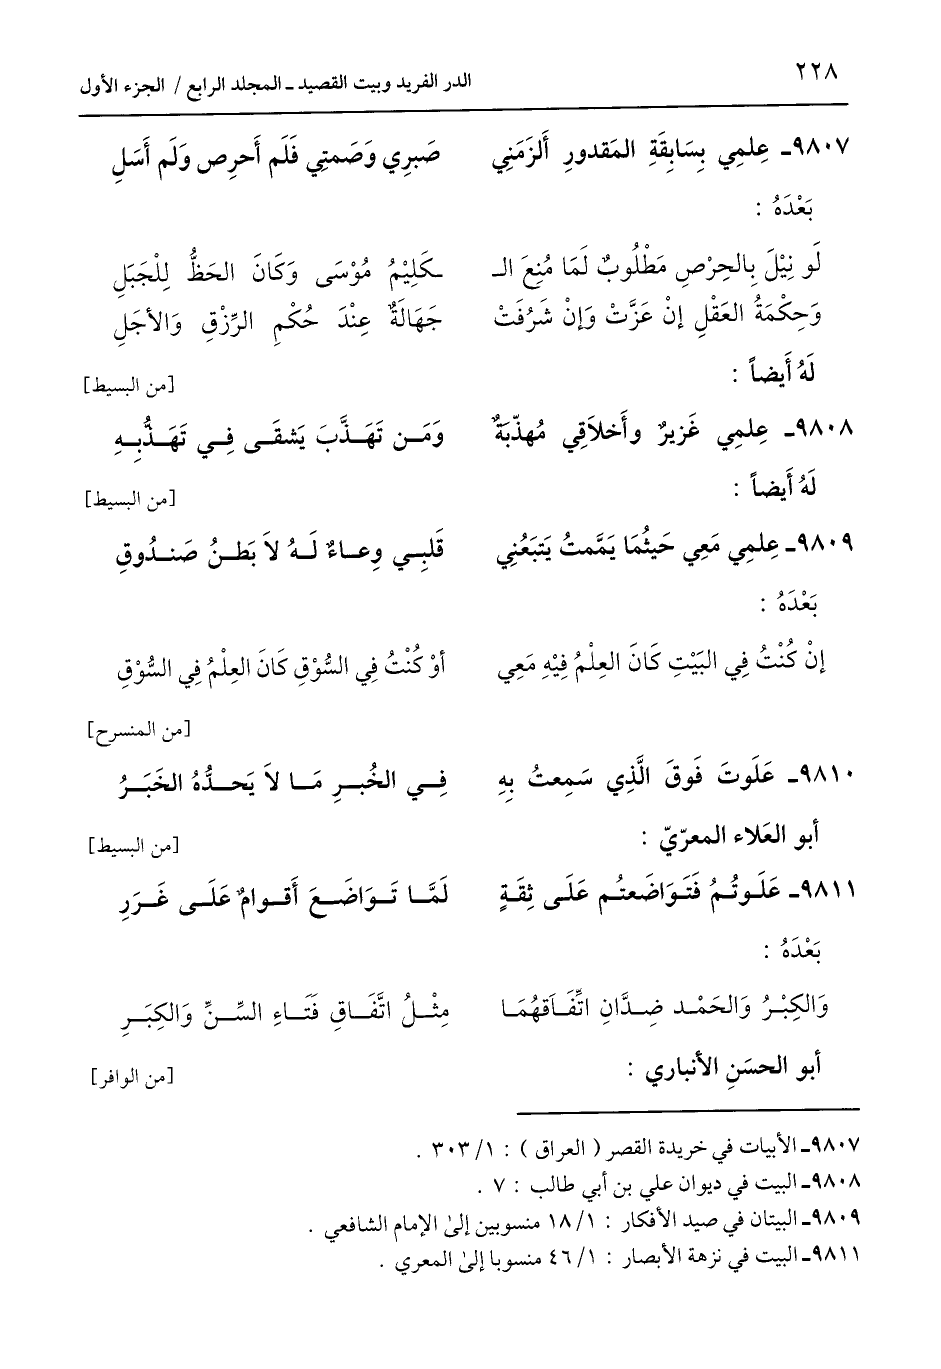 ٢٢٨
الدر الفريد وبيت القصيد ـ المجلد الرابع / الجزء الأول
٩٨٠٧ـ عِلمِي بِسَابِقَةِ المَقدورِ أَلزَمَنِي صَبرِي وَصَمتِي فَلَم أَحرِص وَلَم أَسَلِ
بَعْدَهُ :
لَو نِيْلَ بِالحِرْصِ مَطْلُوبٌ لَمَا مُنِعَ الـ ـكَلِيْمُ مُوْسَى وَكَانَ الحَظُّ لِلْجَبَلِ
وَحِكْمَةُ العَقْلِ إنْ عَزَّتْ وَإنْ شَرُفَتْ جَهَالَةٌ عِنْدَ حُكْمِ الرِّزْقِ وَالأجَلِ
لَهُ أَيضاً :
[من البسيط]
٩٨٠٨ـ عِلمِي غَزيرٌ وأَخلاَقِي مُهذّبَةٌ وَمَـن تَهَـذَّبَ يَشقَـى فِـي تَهَـذُّبِـهِ
لَهُ أَيضاً :
[من البسيط]
٩٨٠٩ـ عِلمِي مَعِي حَيثُمَا يَمَّمتُ يَتبَعُنِي قَلبِـي وِعـاءٌ لَـهُ لاَ بَطـنُ صَنـدُوقِ
بَعْدَهُ :
إنْ كُنْتُ فِي البَيْتِ كَانَ العِلْمُ فِيْهِ مَعِي أوْ كُنْتُ فِي السُّوْقِ كَانَ العِلْمُ فِي السُّوْقِ
[من المنسرح]
٩٨١٠ـ عَلَوتَ فَوقَ الَّذِي سَمِعتُ بِهِ فِـي الخُبـرِ مَـا لاَ يَحـدُّهُ الخَبَـرُ
أبو العَلاء المعرّيّ :
[من البسيط]
٩٨١١ـ عَلَـوتُـمُ فَتَـوَاضَعتُـم عَلَـى ثِقَـةٍ لَمَّـا تَـوَاضَـعَ أَقـوامٌ عَلَـى غَـرَرِ
بَعْدَهُ :
وَالكِبْـرُ وَالحَمْـد ضِـدَّانِ اتِّفَـاقَهُمَـا مِثْـلُ اتِّفَـاقِ فَتَـاءِ السِّـنِّ وَالكِبَـرِ
أبو الحسَنِ الأنباري :
[من الوافر]
٩٨٠٧ـ الأبيات في خريدة القصر ( العراق ) : ١/ ٣٠٣ .
٩٨٠٨ـ البيت في ديوان علي بن أبي طالب : ٧ .
٩٨٠٩ـ البيتان في صيد الأفكار : ١/ ١٨ منسوبين إلىٰ الإمام الشافعي .
٩٨١١ـ البيت في نزهة الأبصار : ١/ ٤٦ منسوبا إلىٰ المعري .